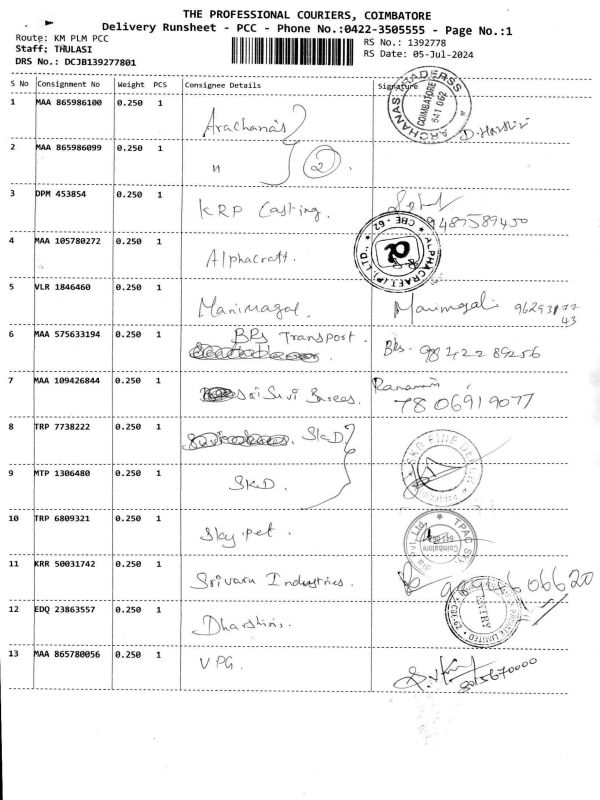 THE PROFESSIONAL COURIERS, COIMBATORE
Delivery Runsheet - PCC - Phone No.:0422-3505555 - Page No.:1
Route: KM PLM PCC
RS No.: 1392778
Staff: THULASI
RS Date: 05-Jul-2024
DRS No.: DCJB139277801
S No Consignment No Weight PCS Consignee Details Signature
1 MAA 865986100 0.250 1 Arachanas
ARCHANAS TRADERSS COIMBATORE 641 062
D. Harshini
2 MAA 865986099 0.250 1 " 2
3 DPM 453854 0.250 1 KRP Casting. 9487589450
4 MAA 105780272 0.250 1 Alphacraft.
ALPHACRAFT (P) LTD., CBE - 62
5 VLR 1846460 0.250 1 Manimagal Manimgal 9629317743
6 MAA 575633194 0.250 1 BPS Transport. Bks. 9842289256
7 MAA 109426844 0.250 1 Sri Suvi 7806919077
8 TRP 7738222 0.250 1 SKD
SKD FINE
9 MTP 1306480 0.250 1 SKD.
10 TRP 6809321 0.250 1 Sky pet.
TPAC Sky Pvt. Ltd. Coimbatore
11 KRR 50031742 0.250 1 Srivaru Industries.
12 EDQ 23863557 0.250 1 Dharshini.
PRIVATE LIMITED ENTRY
13 MAA 865780056 0.250 1 VPG. 8015670000